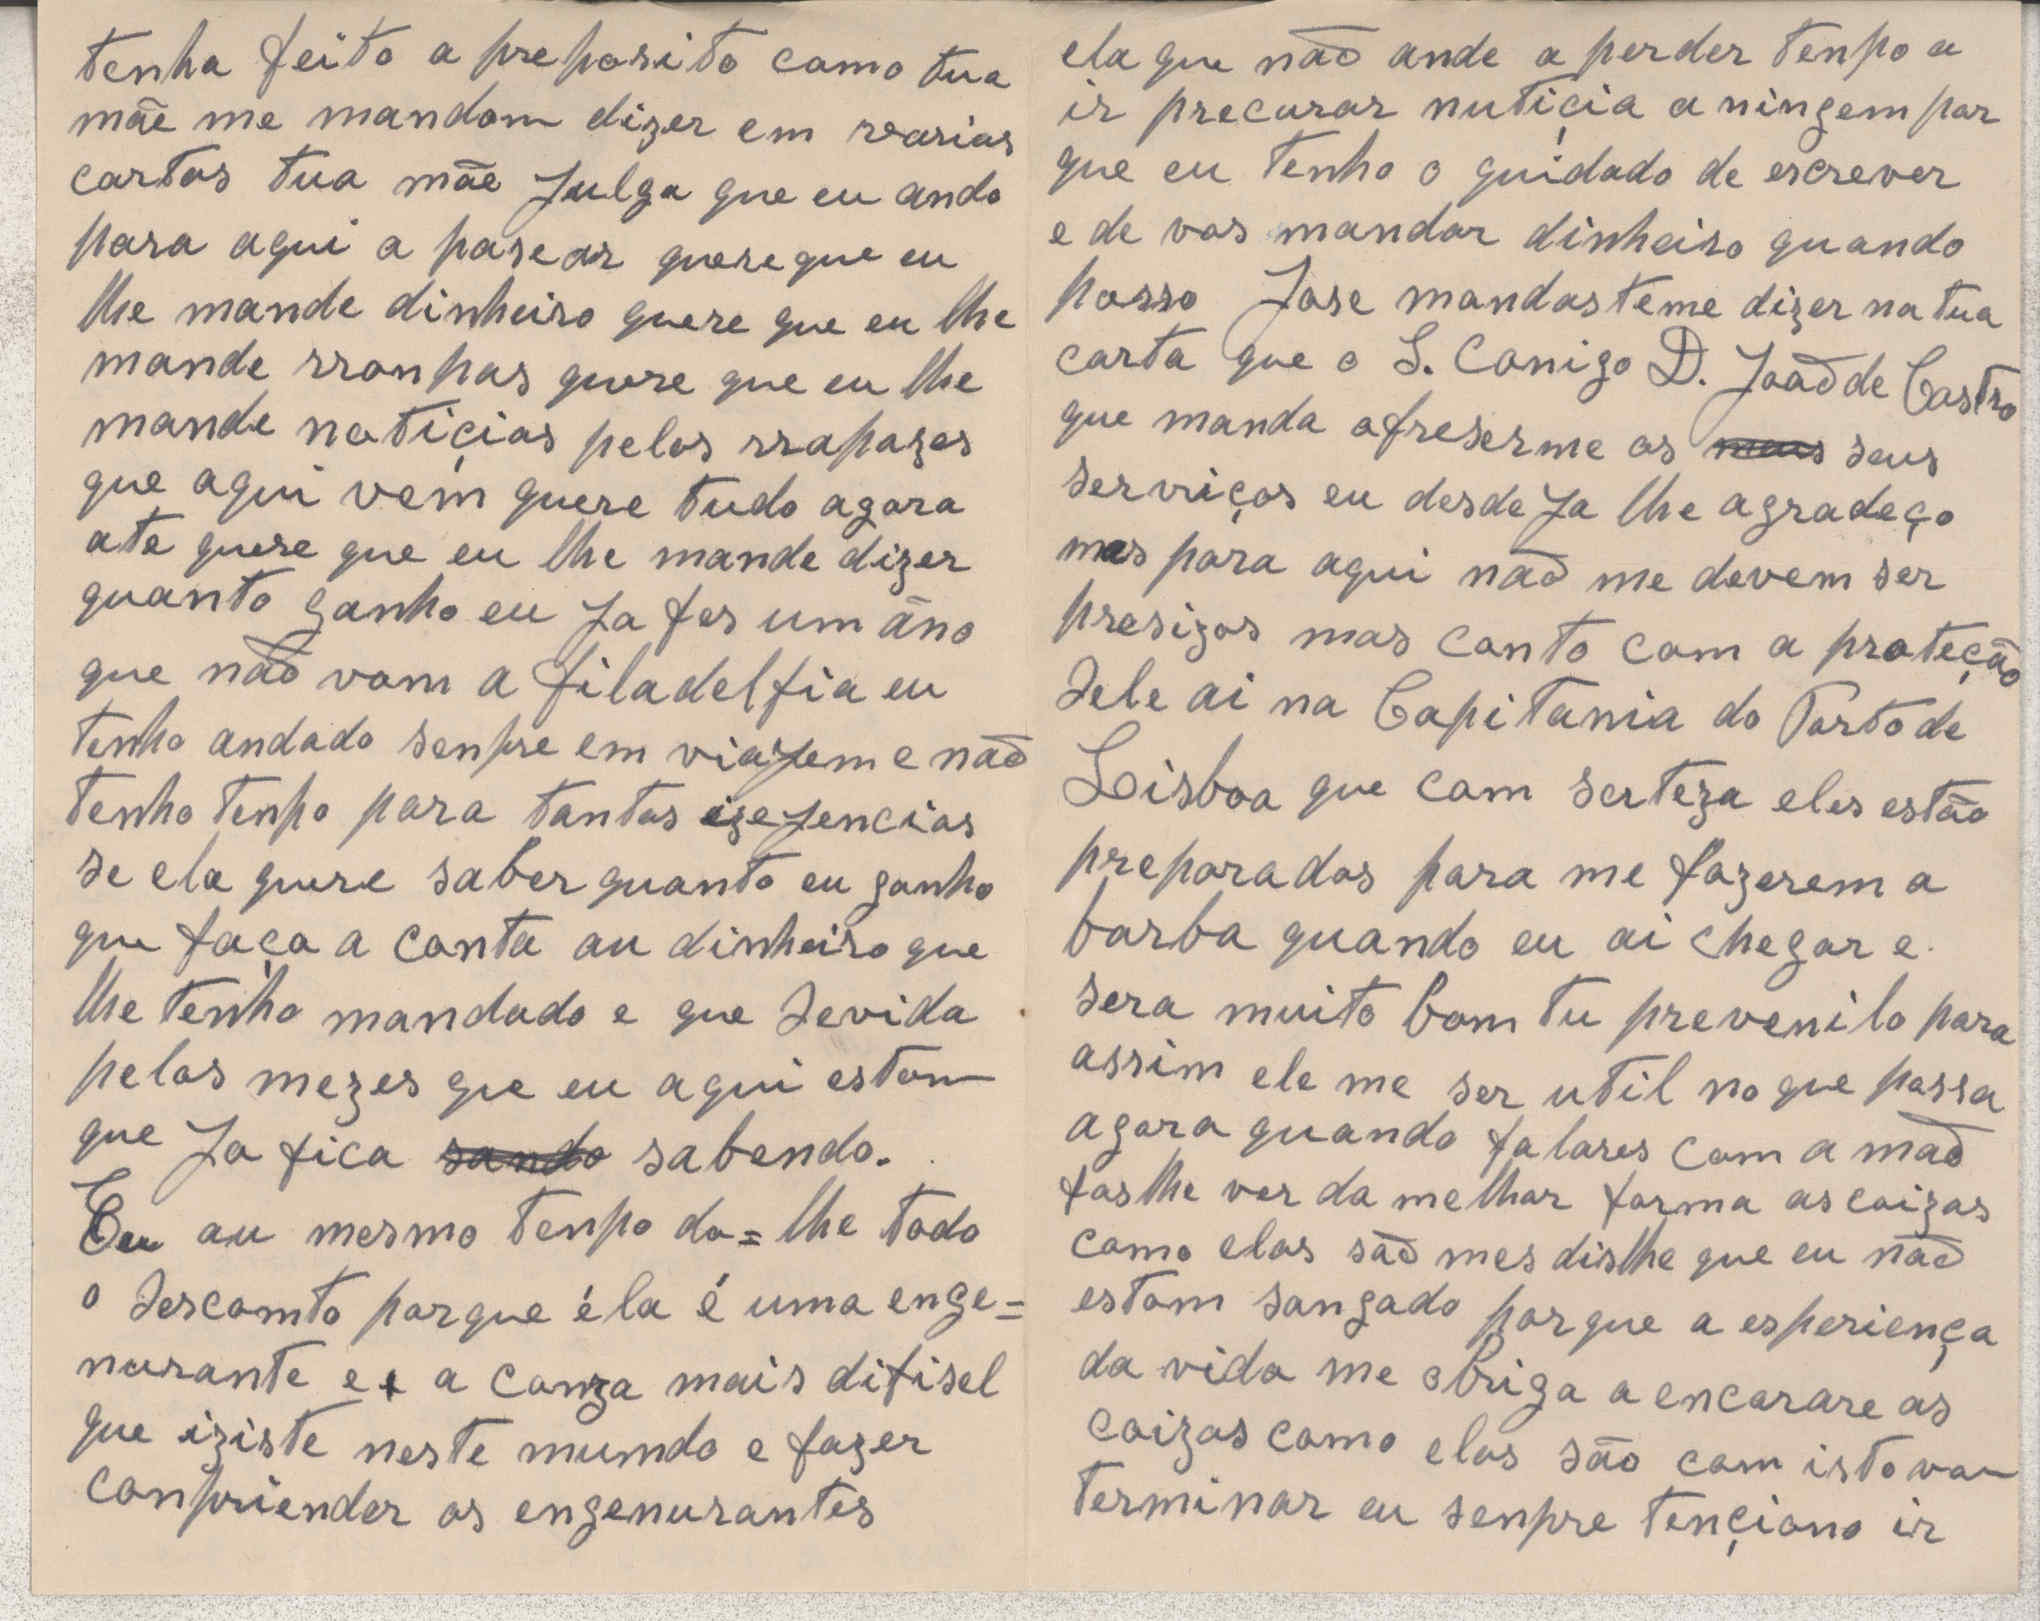 tenha feito a preposito como tua
mãe me mandou dizer em varias
cartas tua mãe julga que eu ando
para aqui a pasear quere que eu
lhe mande dinheiro quere que eu lhe
mande rroupas quere que eu lhe
mande notiçias pelos rrapazes
que aqui vem quere tudo agora
ate quere que eu lhe mande dizer
quanto ganho eu ja fes um āno
que não vom a filadelfia eu
tenho andado senpre em viajem e não
tenho tenpo para tantas izejencias
se ela quere saber quanto eu ganho
que faça a conta au dinheiro que
lhe tenho mandado e que devida
pelos mezes que eu aqui estou
que ja fica sando sabendo.
Eu au mesmo tenpo do=lhe todo
o descomto porque éla é uma enge=
nurante e a couza mais difisel
que iziste neste mumdo e fazer
conpriender os engenurantes
ela que não ande a perder tenpo a
ir precurar nutiçia a ningem por
que eu tenho o guidado de escrever
e de vos mandar dinheiro quando
posso Jose mandasteme dizer na tua
carta que o S. Conigo D. João de Castro
que manda ofreserme os meus seus
serviços eu desde ja lhe agradeço
mas para aqui não me devem ser
presizos mas conto com a proteção
dele ai na Capitania do Porto de
Lisboa que com serteza eles estão
preparados para me fazerem a
barba quando eu ai chegar e
sera muito bom tu prevenilo para
assim ele me ser util no que possa
agora quando falares com a mão
faslhe ver da melhor forma as coizas
como elas são mes dislhe que eu não
estom sangado porque a esperiença
da vida me obriga a encarare as
coizas como elas são com isto vou
terminar eu senpre tençiono ir